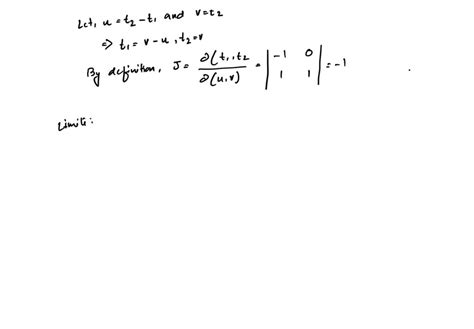 Let, u = t₂ - t₁ and v = t₂
⇒ t₁ = v - u, t₂ = v
By definition, J = ∂(t₁, t₂ / ∂(u, v) = | -1 0 |
| 1 1 | = -1
Limits: